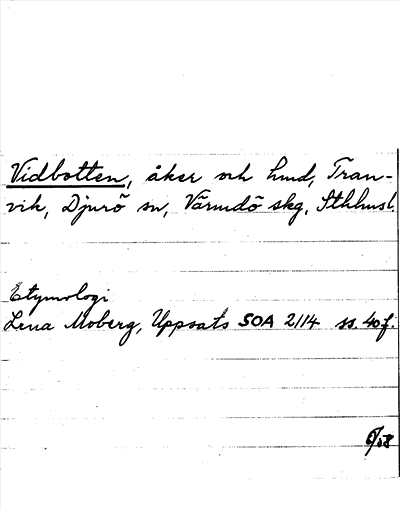 Vidbotten, åker och lund, Tran-
vik, Djurö sn, Värmdö skg, Sthlmsl.
Etymologi
Lena Moberg, Uppsats SOA 2114 ss. 40 f.